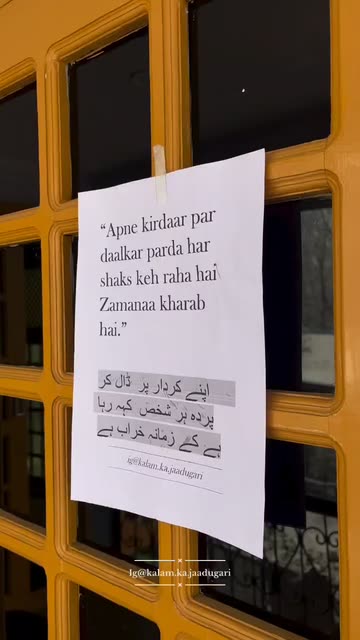 “Apne kirdaar par
daalkar parda har
shaks keh raha hai
Zamanaa kharab
hai.”
اپنے کردار پر ڈال کر
پردہ ہر شخص کہہ رہا
ہے کے زمانہ خراب ہے
ig@kalam.ka.jaadugari
Ig@kalam.ka.jaadugari